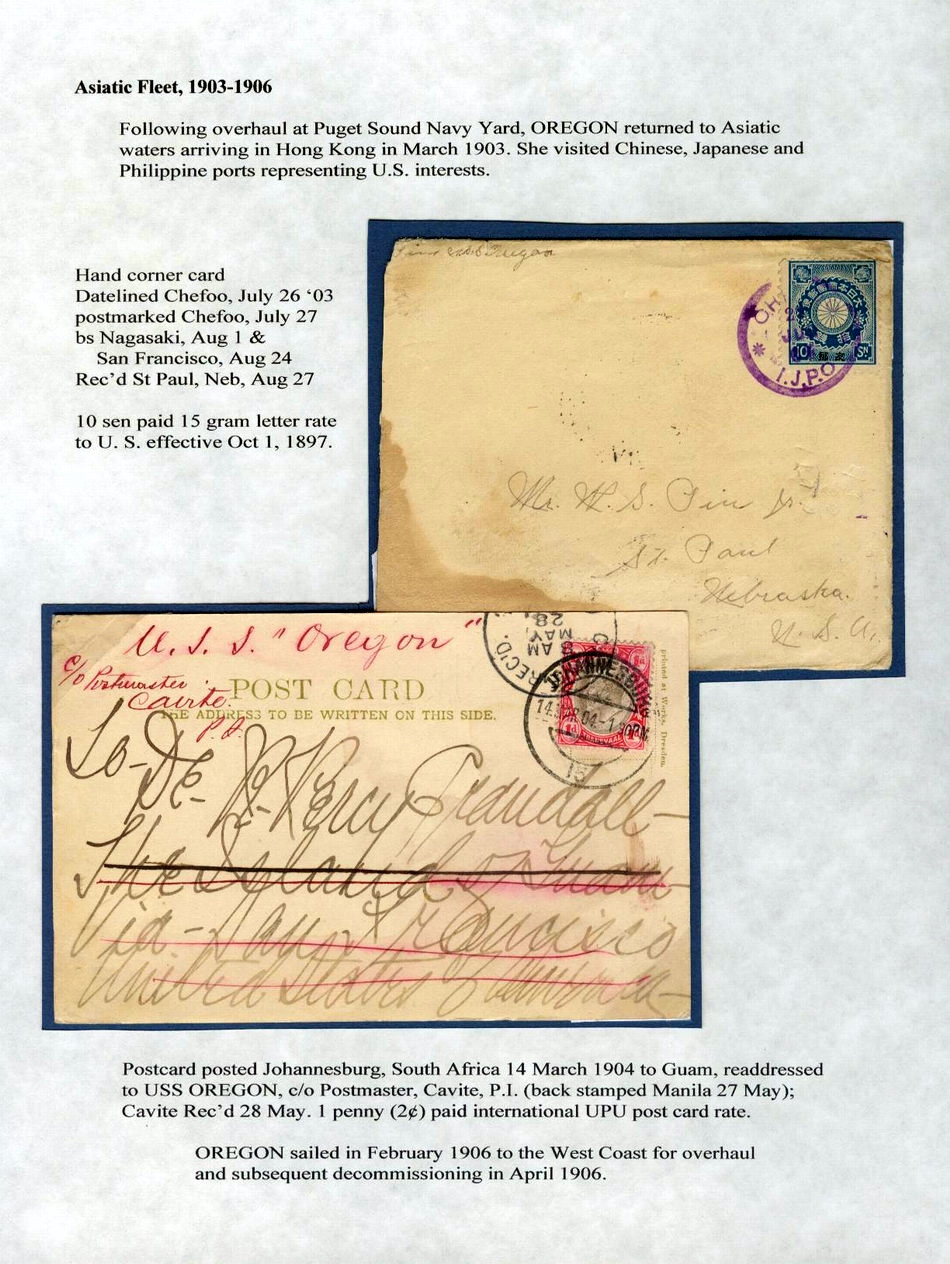 Asiatic Fleet, 1903-1906
Following overhaul at Puget Sound Navy Yard, OREGON returned to Asiatic
waters arriving in Hong Kong in March 1903. She visited Chinese, Japanese and
Philippine ports representing U.S. interests.
Hand corner card
Datelined Chefoo, July 26 ‘03
postmarked Chefoo, July 27
bs Nagasaki, Aug 1 &
San Francisco, Aug 24
Rec’d St Paul, Neb, Aug 27
10 sen paid 15 gram letter rate
to U. S. effective Oct 1, 1897.
Oregon
10 Sn
I.J.P.O
Mr. H. S. Jr.
St. Paul
Nebraska.
U. S. A.
U. S. S. "Oregon"
c/o Postmaster
Cavite.
P.I.
POST CARD
THE ADDRESS TO BE WRITTEN ON THIS SIDE.
REC'D.
8 AM
MAY
28
JOHANNESBURG
TRANSVAAL
printed at Works, Dresden.
To-Dr- R. Percy Crandall-
The Island of Guam-
Via-San Francisco
United States of America-
Postcard posted Johannesburg, South Africa 14 March 1904 to Guam, readdressed
to USS OREGON, c/o Postmaster, Cavite, P.I. (back stamped Manila 27 May);
Cavite Rec’d 28 May. 1 penny (2¢) paid international UPU post card rate.
OREGON sailed in February 1906 to the West Coast for overhaul
and subsequent decommissioning in April 1906.